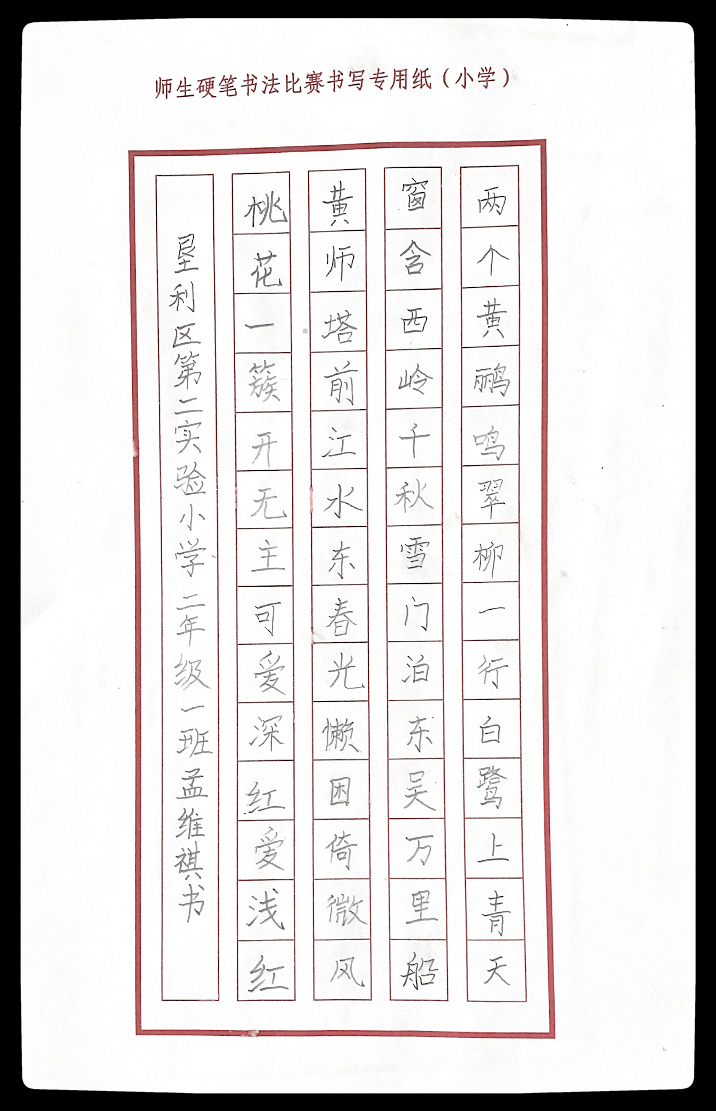 师生硬笔书法比赛书写专用纸（小学）
两个黄鹂鸣翠柳一行白鹭上青天
窗含西岭千秋雪门泊东吴万里船
黄师塔前江水东春光懒困倚微风
桃花一簇开无主可爱深红爱浅红
垦利区第二实验小学二年级一班孟维祺书